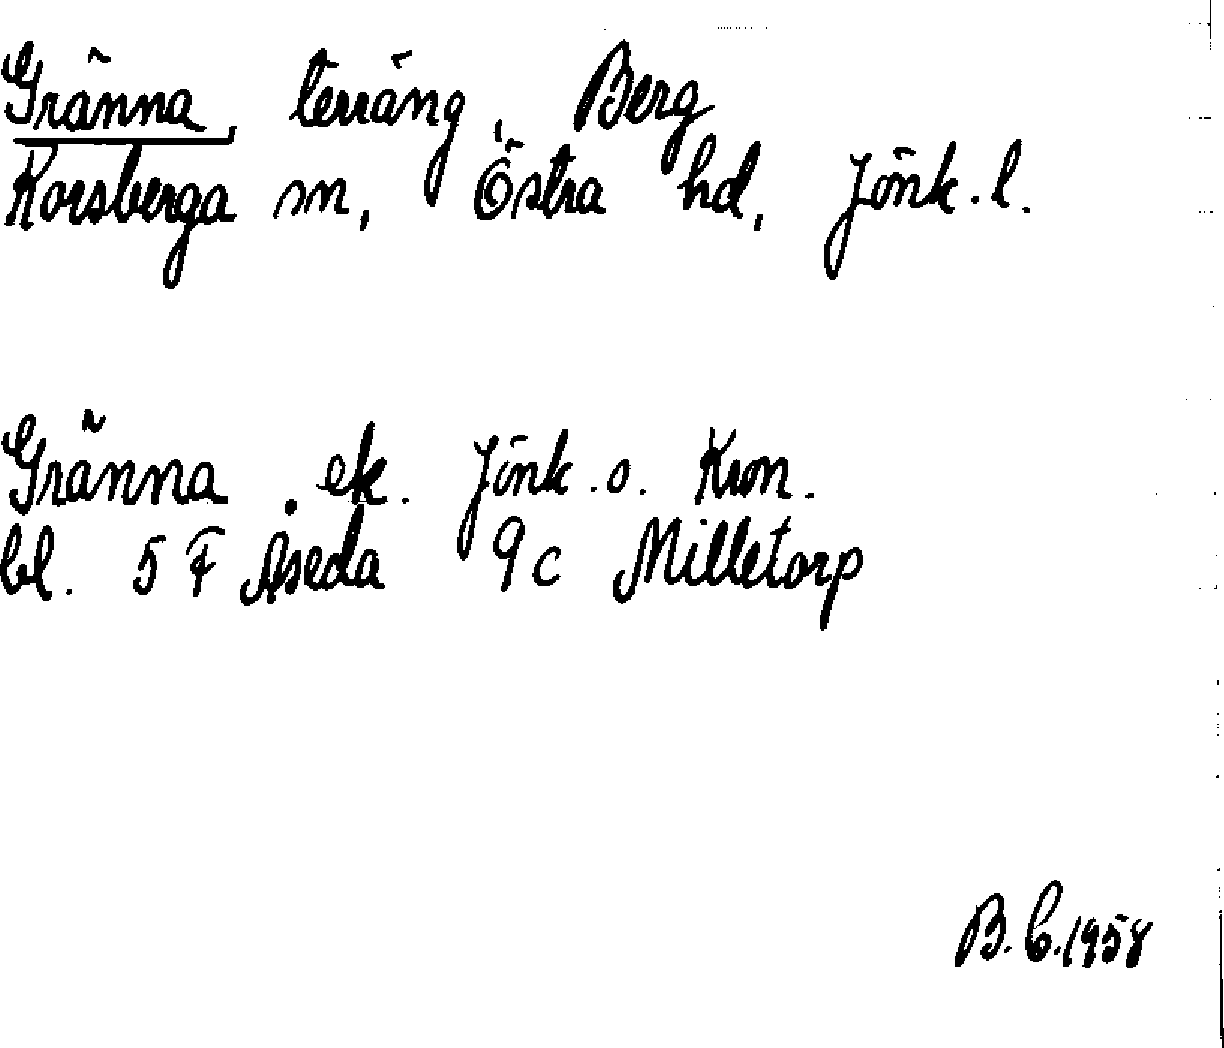 Gränna, terräng, Berg
Korsberga sn, Östra hd, Jönk. l.
Gränna . ek. Jönk. o. Kron.
bl. 5 F Åseda 9 c Milletorp
B. C. 1958